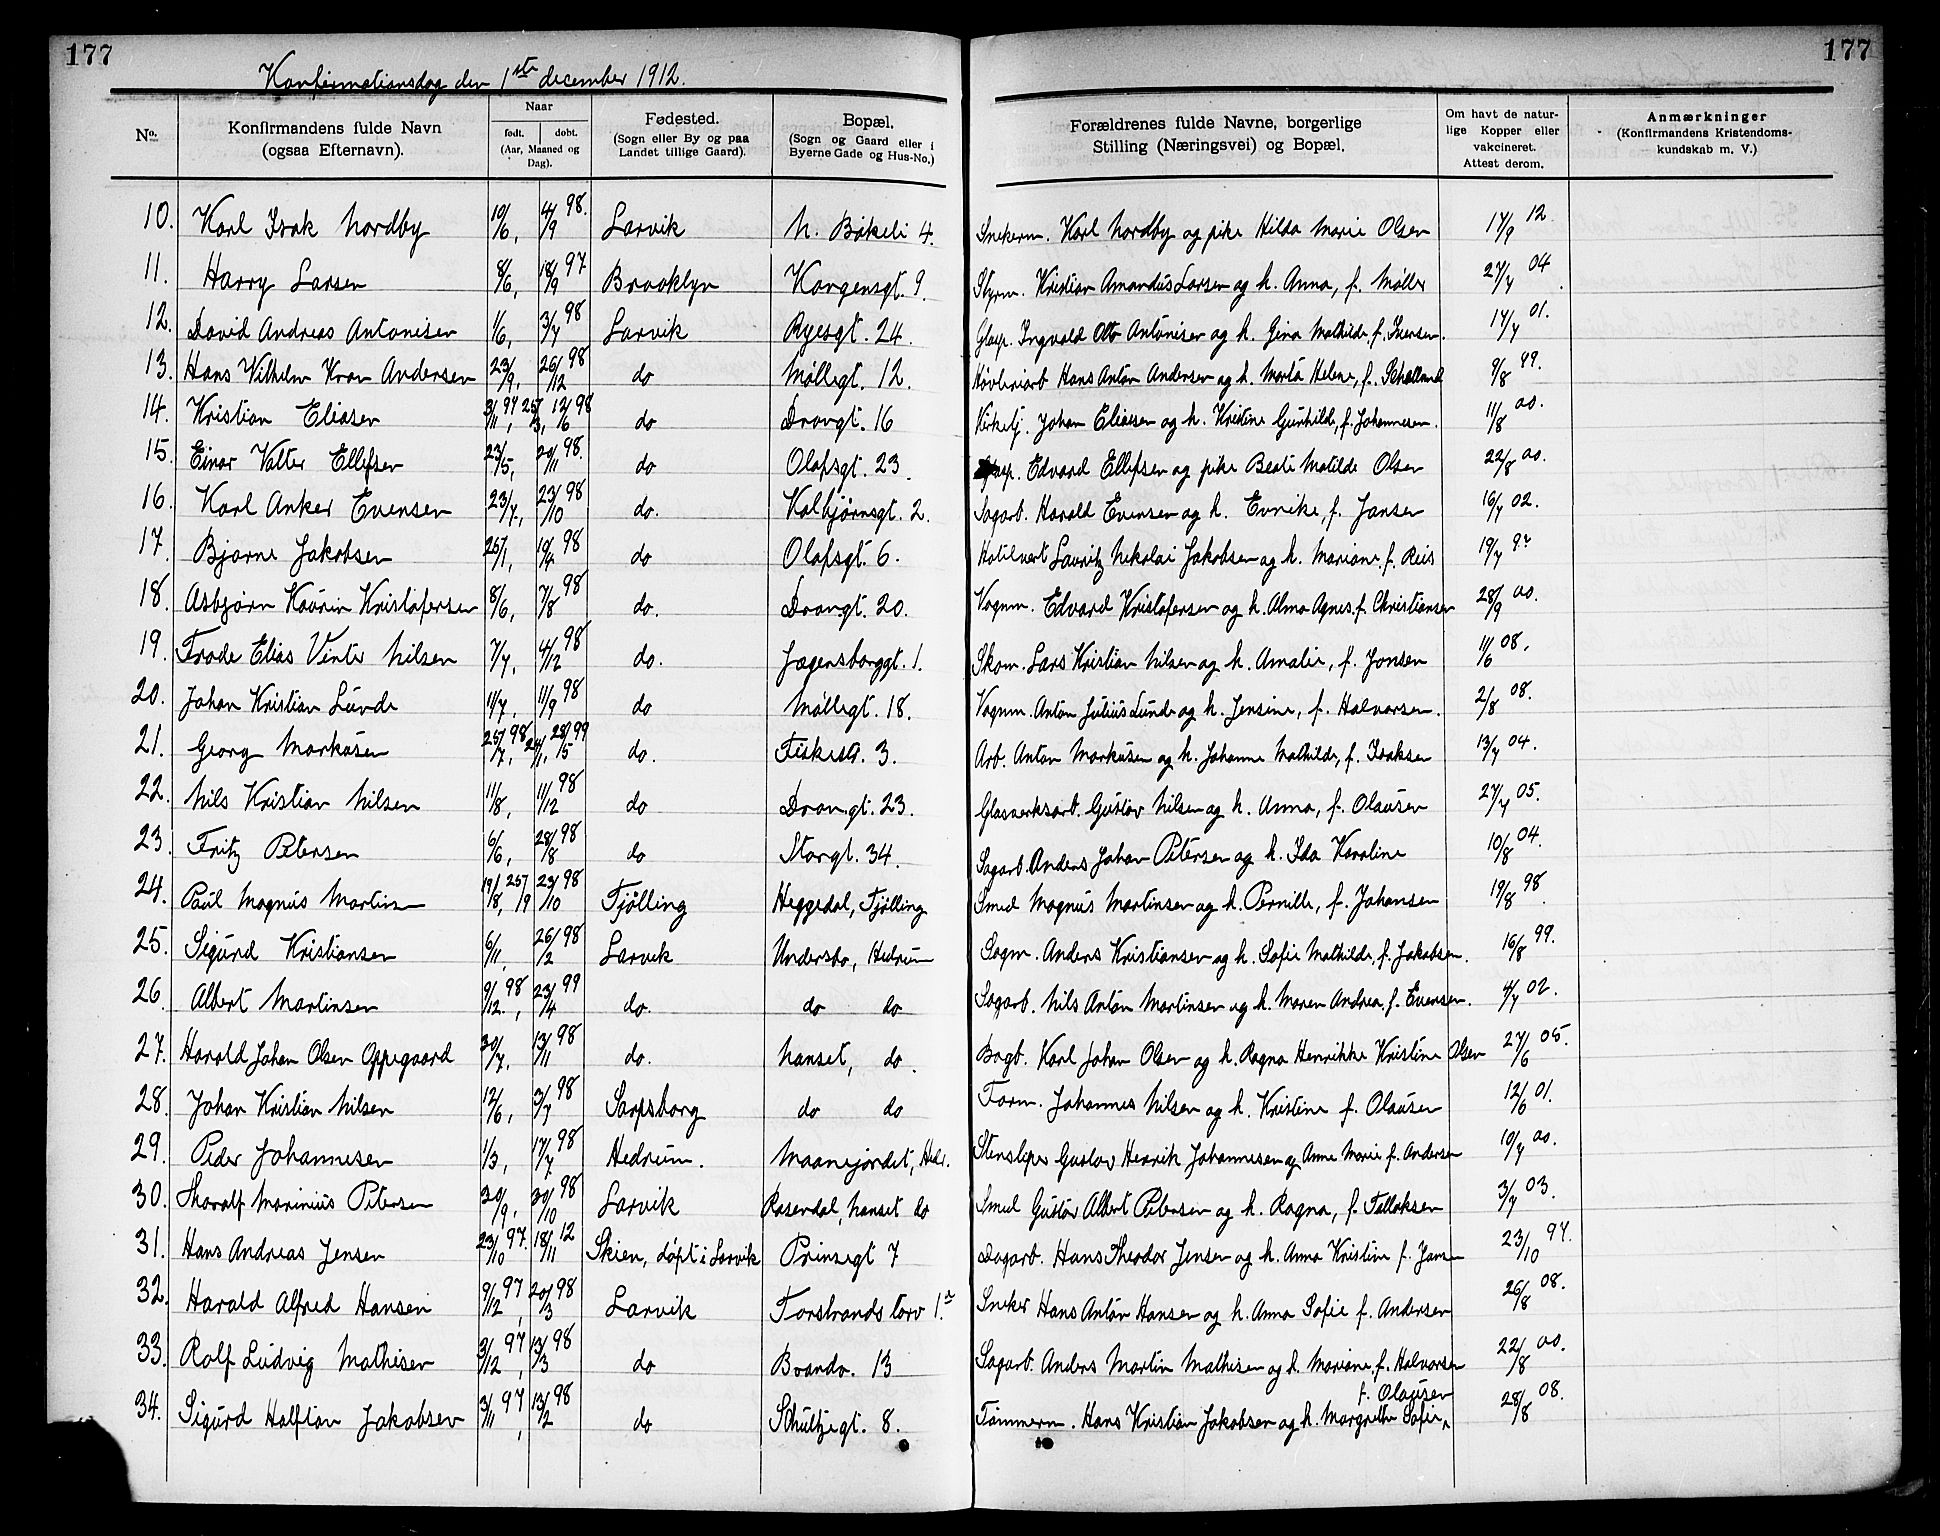 177
177
Konfirmationsdag den 1ste december 1912.
No.
Konfirmandens fulde Navn (ogsaa Efternavn).
Naar
født. døbt.
(Aar, Maaned og Dag).
Fødested.
(Sogn eller By og paa Landet tillige Gaard).
Bopæl.
(Sogn og Gaard eller i Byerne Gade og Hus-No.)
Forældrenes fulde Navne, borgerlige Stilling (Næringsvei) og Bopæl.
Om havt de naturlige Kopper eller vakcineret. Attest derom.
Anmærkninger
(Konfirmandens Kristendomskundskab m. V.)
10. Karl Isak Nordby 10/6, 4/9 98. Larvik N. Bökeli 4. Snekerm. Karl Nordby og pike Hilda Marie Olsen 17/9 12.
11. Harry Larsen 8/6, 18/9 97 Brooklyn Kongensgt. 9. Styrm. Kristian Amandus Larsen og h. Anna, f. Møller 27/7 04
12. David Andreas Antonisen 1/6, 3/7 98 Larvik Ryesgt. 24. Glasp. Ingvald Otto Antonisen og h. Gina Mathilde f. Iversen. 17/7 01.
13. Hans Vilhelm Kran Andersen 23/9, 26/12 98 do Møllegt. 12. Høvleriarb Hans Anton Andersen og h. Marta Helene, f. 9/8 99.
14. Kristian Eliasen 3/11 97, 25/3, 12/6 98 do Drangt. 16 Kirketj. Johan Eliasen og h. Kristine Gunhilde, f. Johannesen. 11/8 00.
15. Einar Valter Ellefsen 23/5, 20/11 98. do Olafsgt. 23. Edvard Ellefsen og pike Beate Matilde Olsen 22/8 00.
16. Karl Anker Evensen 23/7, 23/10 98 do. Kalbjørnsgt. 2. Sagarb. Harald Evensen og h. Evrike, f. Jansen 16/7 02.
17. Bjarne Jakobsen 25/1, 10/4 98 do Olafsgt. 6. Hotelvert Lauritz Nikolai Jakobsen og h. Mariane f. Reis 19/7 9
18. Asbjørn Kaurin Kristofersen 8/6, 7/8 98 do. Drangt. 20. Vognm. Edvard Kristofersen og h. Alma Agnes f. Christiansen 28/9 00.
19. Frode Elias Vinter Nilsen 7/7, 4/12 98 do. Jægersborggt. 1. Skom. Lars Kristian Nilsen og h. Amalie, f. Jonsen 11/6 08.
20. Johan Kristian Lunde 11/7, 11/9 98 do Møllegt. 18. Vognm. Anton Julius Lunde og h. Jensine, f. Halvorsen. 2/8 08.
21. Georg Markusen 25/7 98, 24/1, 28/5 99 do. Fiskest. 3. Arb. Anton Markusen og h. Johanne Mathilde, f. Isaksen 13/7 04.
22. Nils Kristian Nilsen 11/8, 11/12 98 do Drangt. 23. Glasverksarb. Gustav Nilsen og h. Anna, f. Olausen 27/7 05.
23. Fritz Petersen 6/6, 28/8 98 do Storgt. 34. Sagarb. Anders Johan Petersen og h. Ida Karoline 10/8 04.
24. Paul Magnus Martinsen 19/8, 25/9 23/10 98 Tjölling Heggedal, Tjølling Smed Magnus Martinsen og h. Pernille, f. Johansen 19/8 98.
25. Sigurd Kristiansen 6/11, 26/2 98 Larvik Undersbo, Hedrum Sagm. Anders Kristiansen og h. Sofie Mathilde, f. Jakobsen. 16/8 99.
26. Albert Martinsen 9/12 98, 23/4 99 do. do do Sagarb. Nils Anton Martinsen og h. Maren Andrea f. Evensen. 4/7 02.
27. Harald Johan Olsen Oppegaard 30/7, 13/11 98 do. Nanset, do. Bagb. Karl Johan Olsen og h. Ragna Henrikke Kristine Olsen 27/6 05.
28. Johan Kristian Nilsen 12/6, 3/7 98 Sarpsborg do do Form. Johannes Nilsen og h. Kristine f. Olausen 12/6 01.
29. Peder Johannesen 1/3, 17/7 98 Hedrum. Maanejordet, Hedr. Stensliper Gustav Henrik Johannesen og Anne Marie f. Andersen 10/7 00.
30. Thoralf Marinius Petersen 20/9, 30/10 98 Larvik Rosendal, Nanset do Smed Gustav Albert Petersen og h. Ragna, f. Fallaksen 3/7 03.
31. Hans Andreas Jensen 23/10 97. 18/11 12 Skien, døpt i Larvik Prinsegt 7 Dagarb. Hans Theodor Jensen og h. Anna Kristine f. Jansen 23/10 97.
32. Harald Alfred Hansen 9/12 97, 20/3 98 Larvik Torstrands torv 1.a Sneker Hans Anton Hansen og h. Anna Sofie f. Andersen 26/8 08.
33. Rolf Ludvig Mathisen 3/12 97, 13/3 98 do Brandv. 13 Sagarb. Anders Martin Mathisen og h. Mariane f. Halvorsen 22/8 00.
34. Sigurd Halftan Jakobsen 3/11 97, 13/2 98 do Schultzegt. 8. Tömmerm. Hans Kristian Jakobsen og h. Margrethe Sofie, f. Olausen 28/8 08.